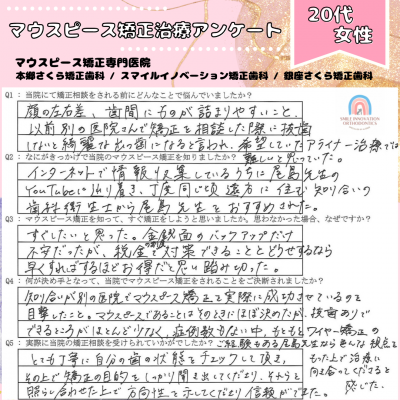 マウスピース矯正治療アンケート
20代
女性
マウスピース矯正専門医院
本郷さくら矯正歯科 / スマイルイノベーション矯正歯科 / 銀座さくら矯正歯科
Q1 : 当院にて矯正相談をされる前にどんなことで悩んでいましたか?
顔の左右差、歯間にものが詰まりやすいこと、
以前別の医院さんで矯正を相談した際に抜歯
しないと綺麗な出っ歯になると言われ、希望していたアライナー治療では
難しいと思っていた。
Q2 : なにがきっかけで当院のマウスピース矯正を知りましたか?
インターネットで情報収集しているうちに尾島先生の
YouTubeに辿り着き、丁度同じ頃遠方に住む知り合いの
歯科衛生士から尾島先生をおすすめされた。
Q3 : マウスピース矯正を知って、すぐ矯正しようと思いましたか。思わなかった場合、なぜですか?
すぐしたいと思った。金銭面のバックアップだけ
不安だったが、税金で対策できることとどうせするなら
早くすればするほどお得だと思い踏み切った。
Q4 : 何が決め手となって、当院でマウスピース矯正をされることをご決断されましたか?
知り合いが別の医院でマウスピース矯正で実際に成功させているのを
目撃したこと。マウスピースであることはそのときにほぼ決めたが、抜歯ありで
できるところがほとんど少なく、症例数もない中、もともとワイヤー矯正の
ご経験もある尾島先生なら色んな視点を
もった上で治療に
向き合ってくださると
感じた。
Q5 : 実際に当院の相談を受けられていかがでしたか?
とても丁寧に自分の歯の状態をチェックして頂き、
その上で矯正の目的をしっかり聞き出してくださり、それらと
照らし合わせた上で方向性を示してくださり信頼ができました。
SMILE INNOVATION
ORTHODONTICS